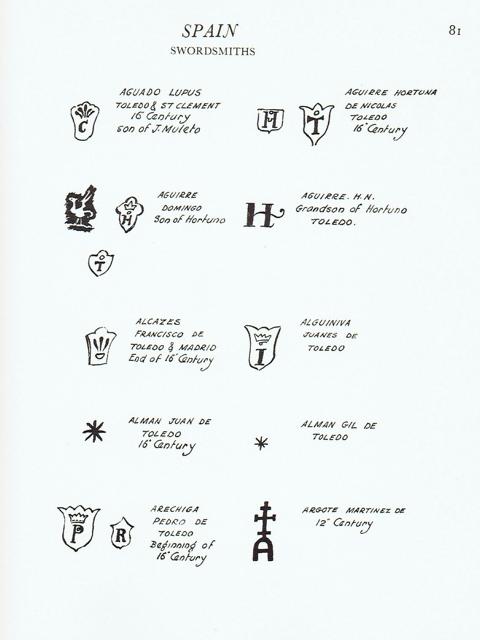 SPAIN
81
SWORDSMITHS
AGUADO LUPUS
TOLEDO & ST CLEMENT
16 Century
son of J. Muleto
C
AGUIRRE HORTUNA
DE NICOLAS
TOLEDO
16 Century
H
T
AGUIRRE
DOMINGO
Son of Hortuno
H
T
AGUIRRE. H.N.
Grandson of Hortuno
TOLEDO.
H
ALCAZES
FRANCISCO DE
TOLEDO & MADRID
End of 16 Century
ALGUINIVA
JUANES DE
TOLEDO
I
ALMAN JUAN DE
TOLEDO
16 Century
ALMAN GIL DE
TOLEDO
ARECHIGA
PEDRO DE
TOLEDO
Beginning of
16 Century
P
R
ARGOTE MARTINEZ DE
12 Century
A